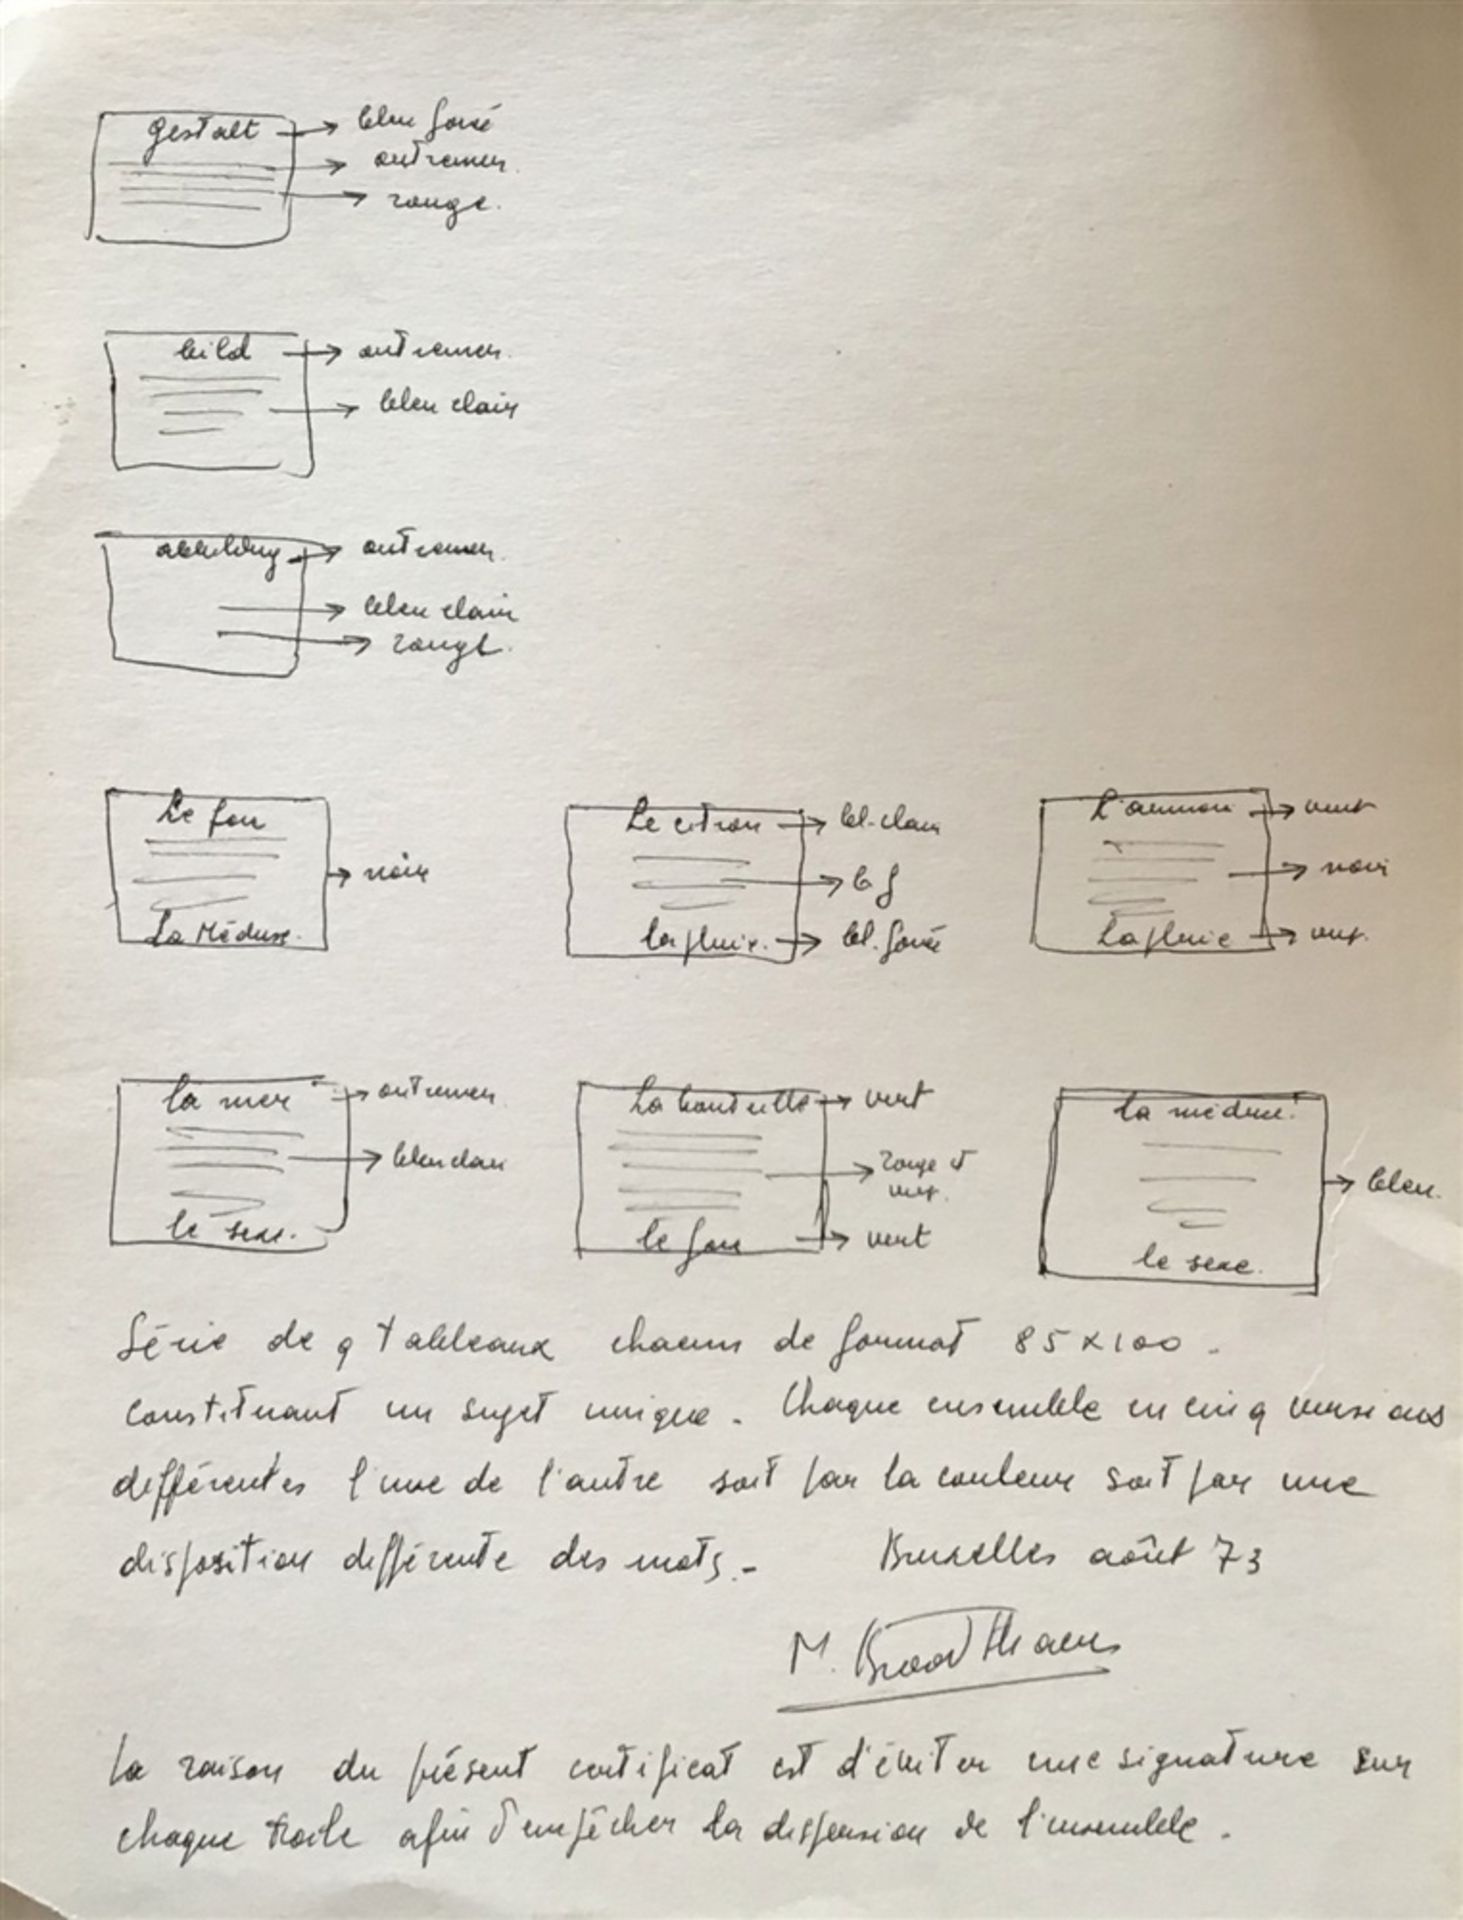 gestalt → bleu foncé
→ outremer.
→ rouge.
bild → outremer.
→ bleu clair
abbildung → outremer.
→ bleu clair
→ rouge.
Le fou
→ noir
La Méduse.
Le citron → bl. clair
→ b f
la pluie. → bl. foncé
→ vert
→ noir
La pluie → vert.
la mer → outremer.
→ bleu clair
le sexe.
La bouteille → vert
→ rouge et
vert.
le fou → vert
la méduse.
→ bleu.
le sexe.
Série de 9 tableaux chacun de format 85 x 100 .
constituant un sujet unique . Chaque ensemble en cinq versions
différentes l'une de l'autre soit par la couleur soit par une
disposition différente des mots . - Bruxelles août 73
M. Broodthaers
La raison du présent certificat est d'éviter une signature sur
chaque toile afin d'empêcher la dispersion de l'ensemble .